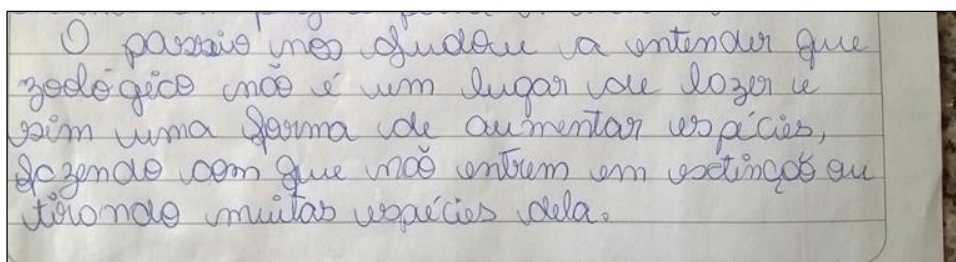 O passeio nos ajudou a entender que
zoológico não é um lugar de lazer e
sim uma forma de aumentar espécies,
fazendo com que não entrem em extinção ou
tirando muitas espécies dela.